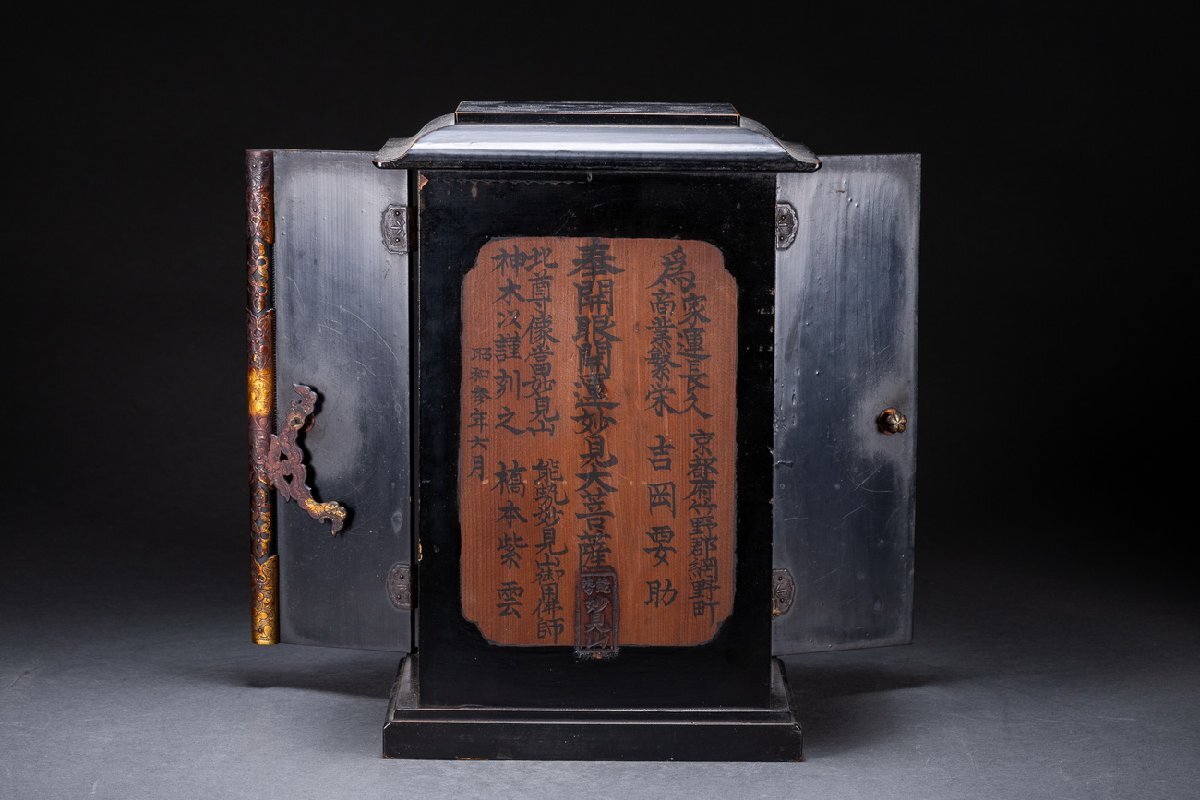 為家運長久 京都府竹野郡網野町
商業繁栄 吉岡要助
奉開眼開運妙見大菩薩
此尊像當妙見山 能勢妙見山御用佛師
神木以謹刻之 橋本紫雲
昭和参年六月
妙見山